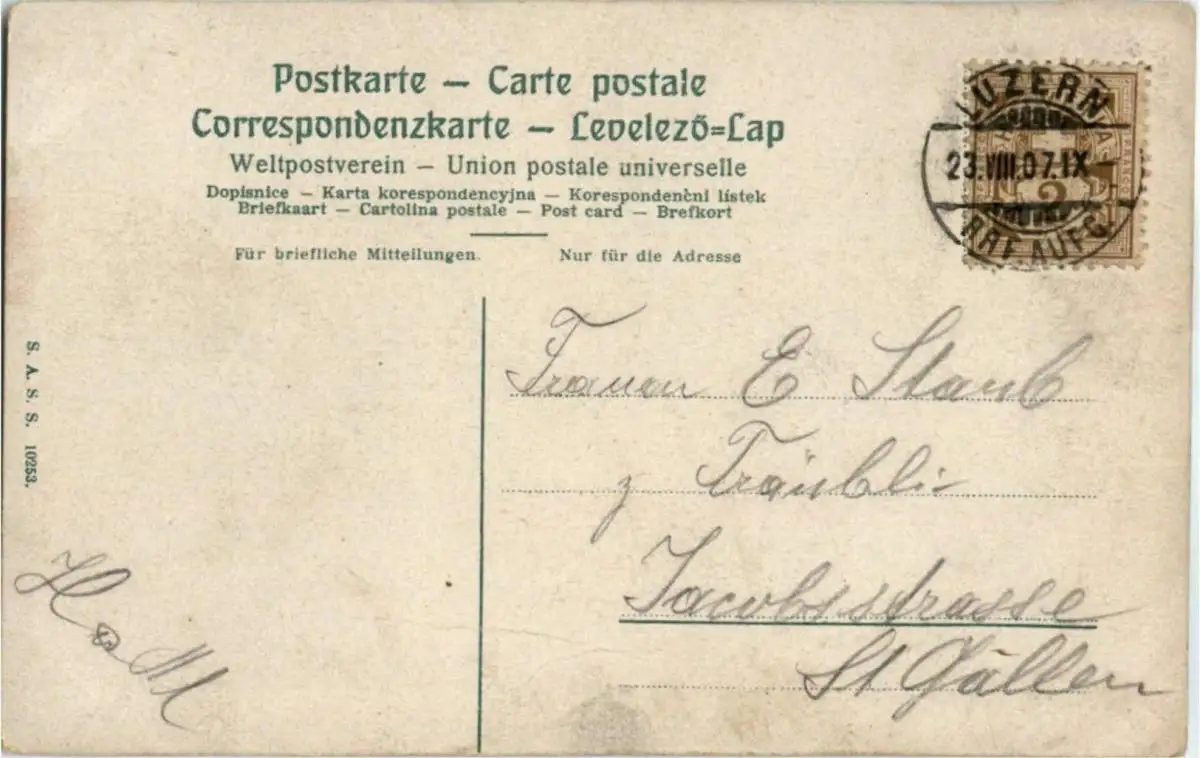 Postkarte – Carte postale
Correspondenzkarte – Levelező=Lap
Weltpostverein – Union postale universelle
Dopisnice – Karta korespondencyjna – Korespondenční lístek
Briefkaart – Cartolina postale – Post card – Brefkort
Für briefliche Mitteilungen.
Nur für die Adresse
LUZERN
23.VIII.07.IX–
BRF. AUFG.
FRANCO
2
S. A. S. S. 10253.
Frauen E Staub
z Träubli
Jacobsstrasse
St Gallen
H & M